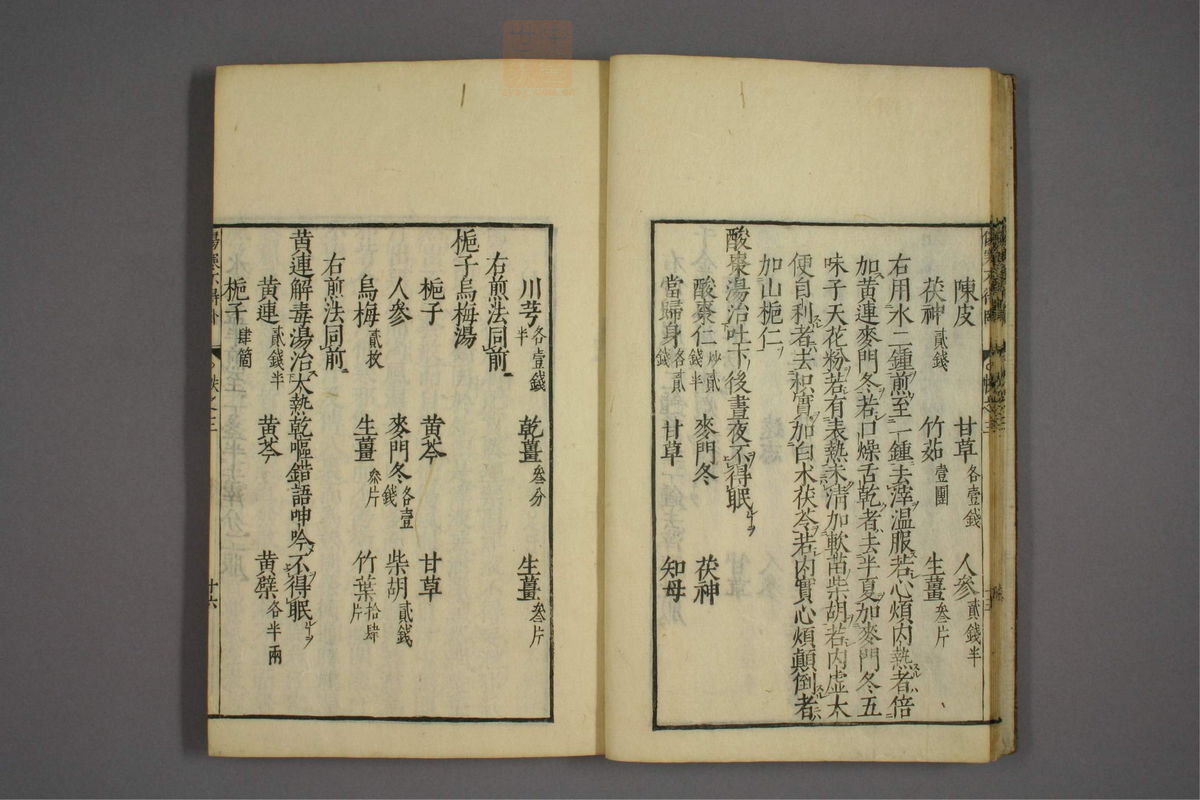 陳皮　甘草各壹錢　人參貳錢半
茯神貳錢　竹茹壹團　生薑叁片
右用水二鍾煎至一鍾去滓溫服若心煩內熱者倍
加黃連麥門冬若口燥舌乾者去半夏加麥門冬五
味子天花粉若有表熱未清加軟苗柴胡若內虛大
便自利者去枳實加白朮茯苓若內實心煩顛倒者
加山梔仁
酸棗湯治吐下後晝夜不得眠
酸棗仁炒貳錢半　麥門冬　茯神
當歸身各貳錢　甘草　知母
川芎各壹錢半　乾薑叁分　生薑叁片
右煎法同前
梔子烏梅湯
梔子　黃芩　甘草
人參　麥門冬各壹錢　柴胡貳錢
烏梅貳枚　生薑參片　竹葉拾肆片
右煎法同前
黃連解毒湯治大熱乾嘔錯語呻吟不得眠
黃連貳錢半　黃芩　黃檗各半兩
梔子肆箇
十六